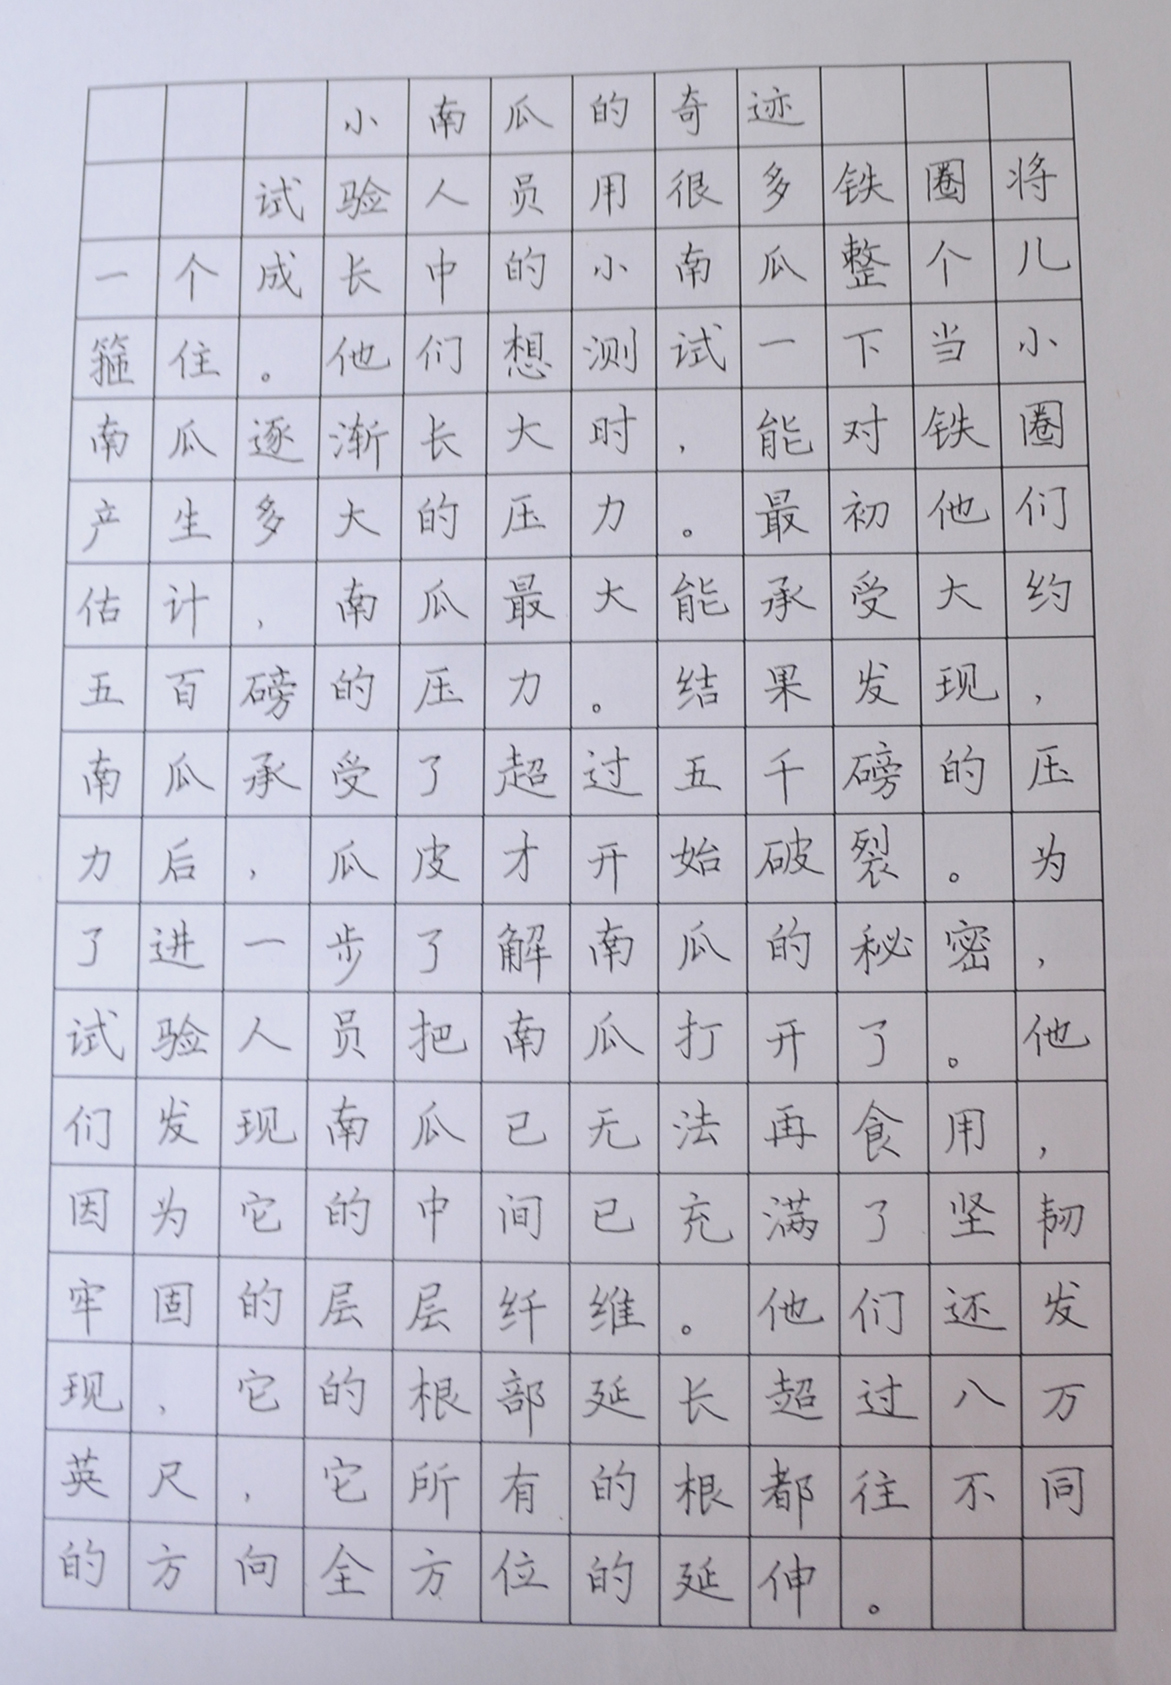 小南瓜的奇迹
试验人员用很多铁圈将
一个成长中的小南瓜整个儿
箍住。他们想测试一下当小
南瓜逐渐长大时，能对铁圈
产生多大的压力。最初他们
估计，南瓜最大能承受大约
五百磅的压力。结果发现，
南瓜承受了超过五千磅的压
力后，瓜皮才开始破裂。为
了进一步了解南瓜的秘密，
试验人员把南瓜打开了。他
们发现南瓜已无法再食用，
因为它的中间已充满了坚韧
牢固的层层纤维。他们还发
现，它的根部延长超过八万
英尺，它所有的根都往不同
的方向全方位的延伸。